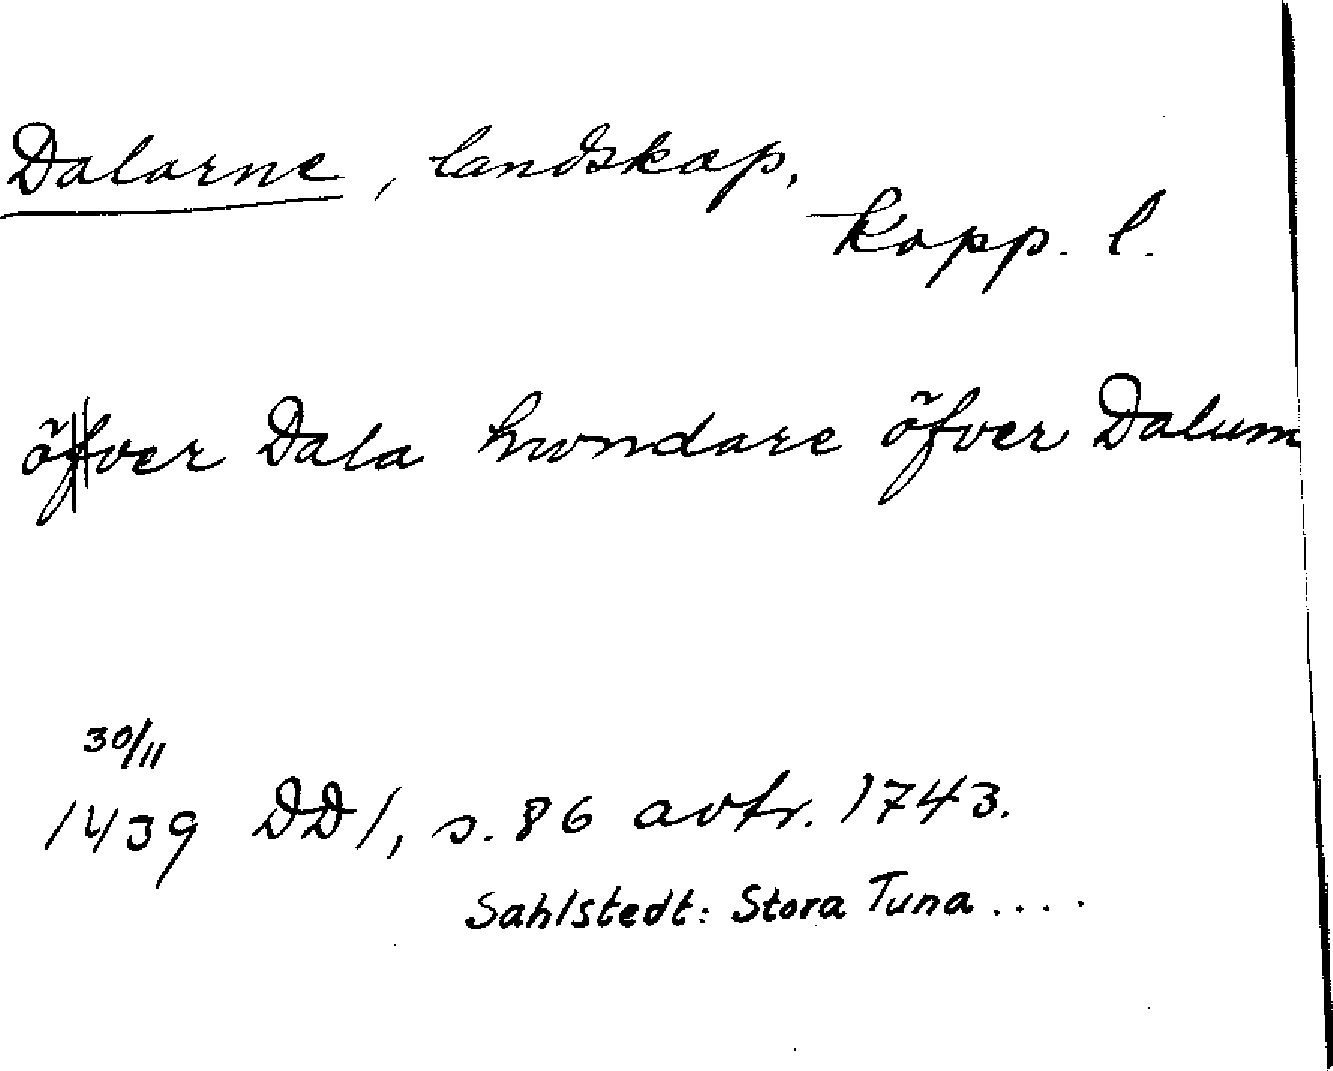 Dalarne, landskap,
Kopp. l.
öfver Dala hwndare öfver Dalum
30/11
1439 DD 1, s. 86 avtr. 1743.
Sahlstedt: Stora Tuna ....